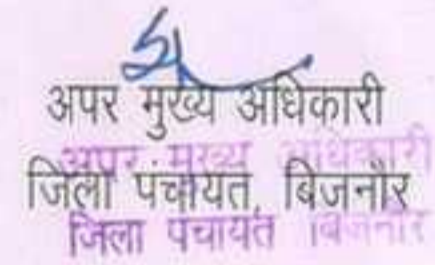 अपर मुख्य अधिकारी
अपर मुख्य अधिकारी
जिला पंचायत, बिजनौर
जिला पंचायत बिजनौर